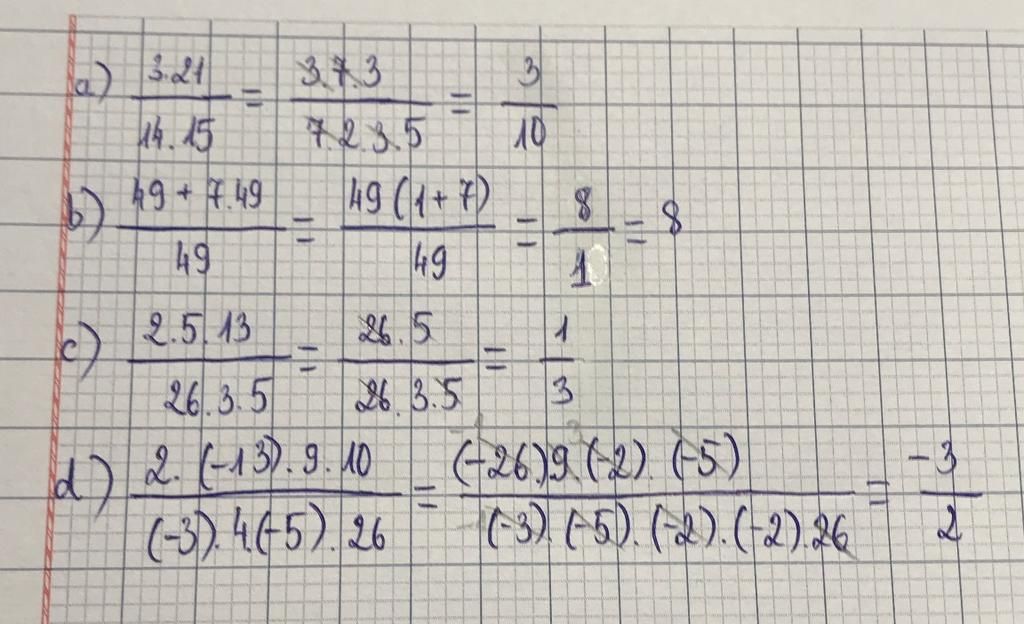 a) 3.21/14.15 = 3.7.3/7.2.3.5 = 3/10
b) 49 + 7.49/49 = 49(1+7)/49 = 8/1 = 8
c) 2.5.13/26.3.5 = 26.5/26.3.5 = 1/3
d) 2.(-13).9.10/(-3).4.(-5).26 = (-26).9.(-2).(-5)/(-3).(-5).(-2).(-2).26 = -3/2